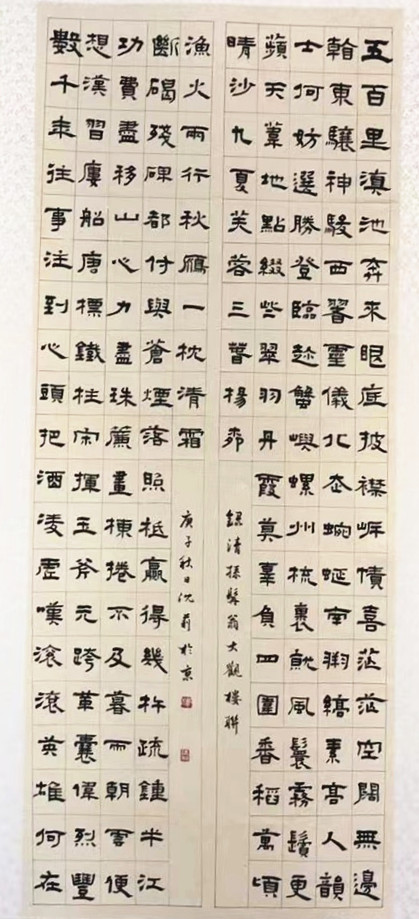 五百里滇池奔來眼底披襟岸幘喜茫茫空闊無邊
看東驤神駿西翥靈儀北走蜿蜒南翔縞素高人韻
士何妨選勝登臨趁蟹嶼螺州梳裹就風鬟霧鬢更
蘋天葦地點綴些翠羽丹霞莫辜負四圍香稻萬頃
晴沙九夏芙蓉三春楊柳
錄清孫髯翁大觀樓聯
數千年往事注到心頭把酒凌虛嘆滾滾英雄何在
想漢習樓船唐標鐵柱宋揮玉斧元跨革囊偉烈豐
功費盡移山心力盡珠簾畫棟捲不及暮雨朝雲便
斷碣殘碑都付與蒼煙落照祗贏得幾杵疏鐘半江
漁火兩行秋雁一枕清霜
庚子秋日沈莉於京